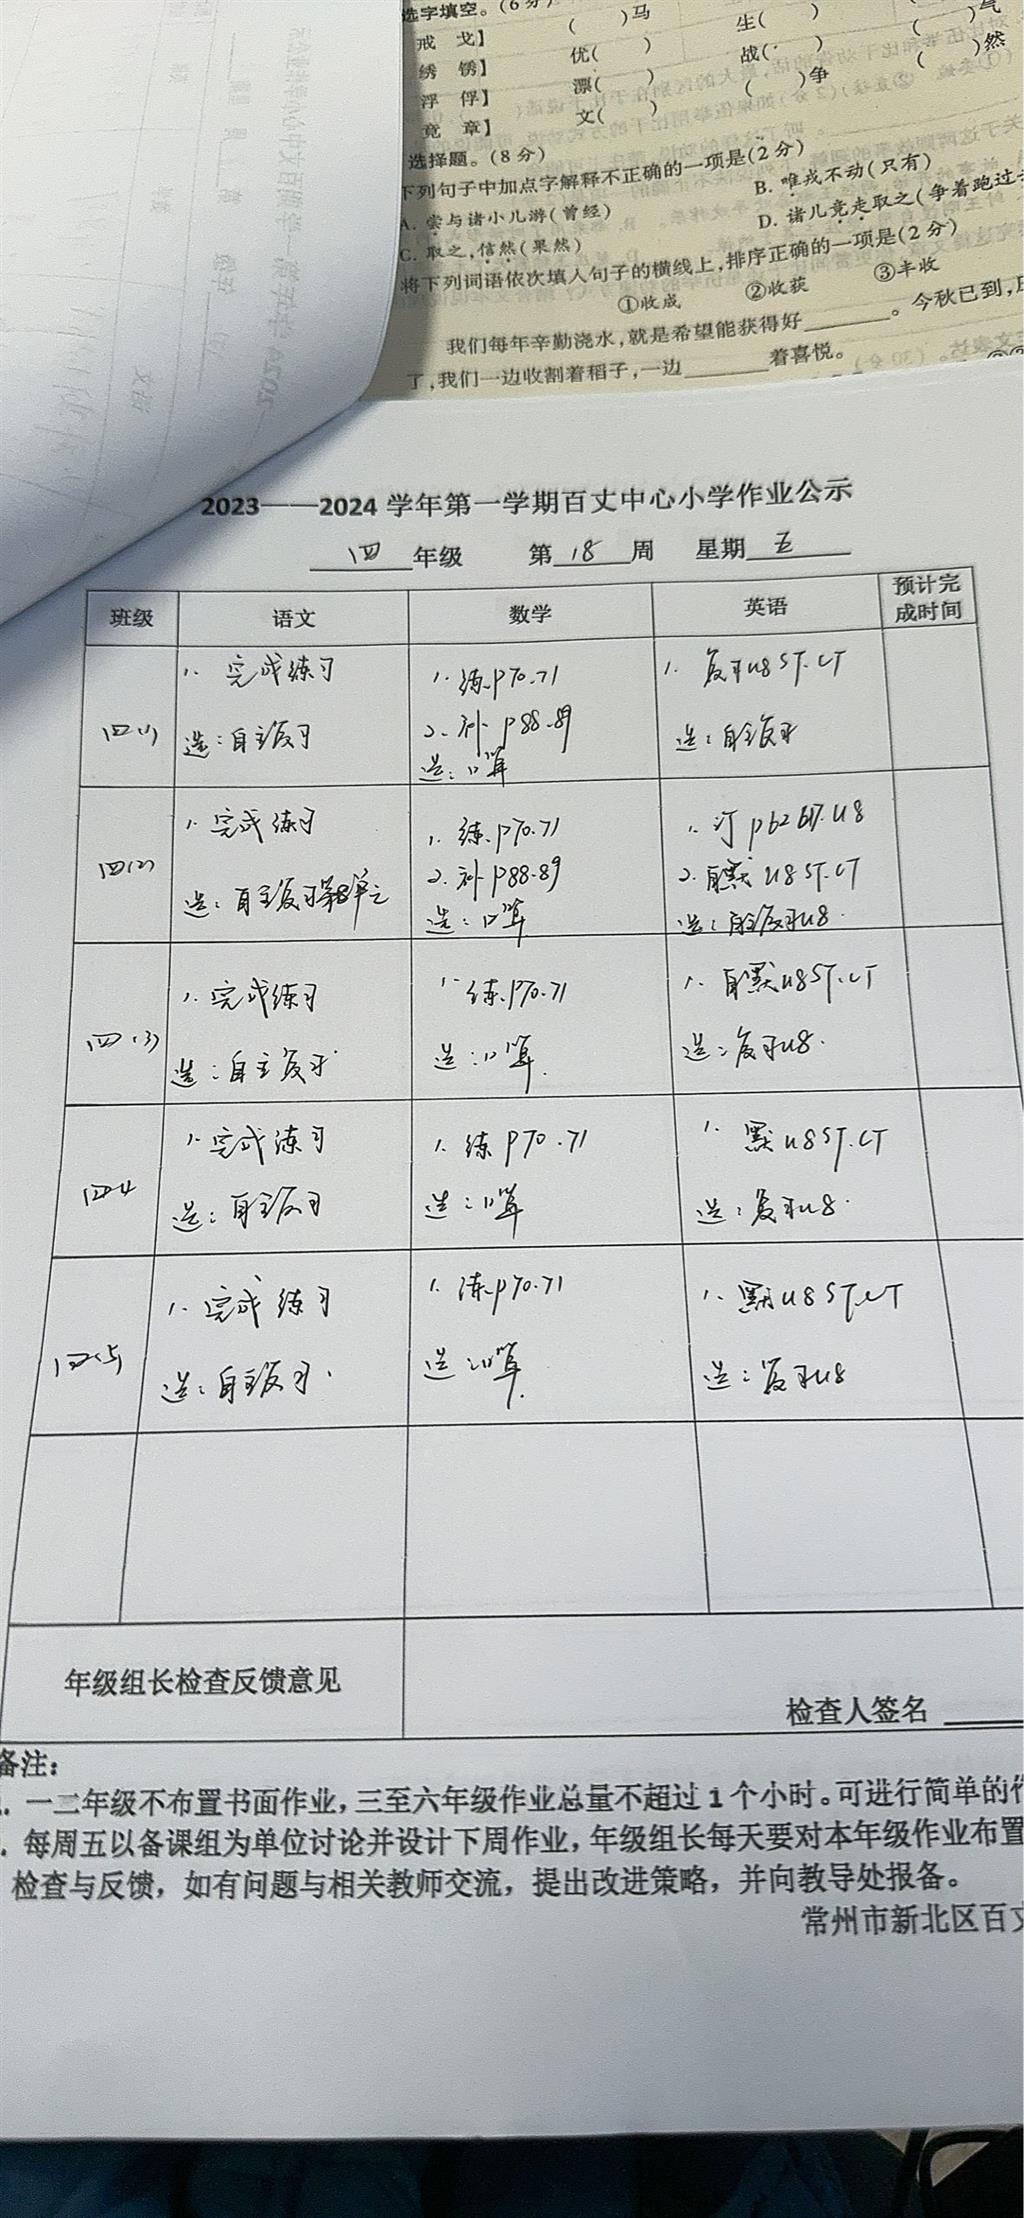 选字填空。(6分)
戒 戈】 ( )马 生( ) ( )气
绣 锈】 优( ) 战( ) ( )然
浮 俘】 漂( ) ( )争
竟 章】 文( )
选择题。(8分)
下列句子中加点字解释不正确的一项是(2分)
A. 尝与诸小儿游(曾经) B. 唯戎不动(只有)
C. 取之,信然(果然) D. 诸儿竞走取之(争着跑过去
将下列词语依次填入句子的横线上,排序正确的一项是(2分)
①收成 ②收获 ③丰收
我们每年辛勤浇水,就是希望能获得好______。今秋已到,
了,我们一边收割着稻子,一边______着喜悦。
2023——2024学年第一学期百丈中心小学作业公示
四 年级 第 18 周 星期 五
班级 语文 数学 英语 预计完成时间
四(1)
1. 完成练习
选:自主复习
1. 练P70.71
2. 补P88.89
选:口算
1. 复习U8 ST.CT
选:自主复习
四(2)
1. 完成练习
选:自主复习第8单元
1. 练P70.71
2. 补P88.89
选:口算
1. 订P62 U8
2. 自默U8 ST.CT
选:自主复习U8.
四(3)
1. 完成练习
选:自主复习
1. 练P70.71
选:口算.
1. 自默U8ST.CT
选:复习U8.
四4
1. 完成练习
选:自主复习
1. 练P70.71
选:口算
1. 默U8ST.CT
选:复习U8.
四(5)
1. 完成练习
选:自主复习.
1. 练P70.71
选:口算.
1. 默U8 ST.CT
选:复习U8
年级组长检查反馈意见
检查人签名
备注:
. 一二年级不布置书面作业,三至六年级作业总量不超过1个小时。可进行简单的
. 每周五以备课组为单位讨论并设计下周作业,年级组长每天要对本年级作业布置
检查与反馈,如有问题与相关教师交流,提出改进策略,并向教导处报备。
常州市新北区百丈